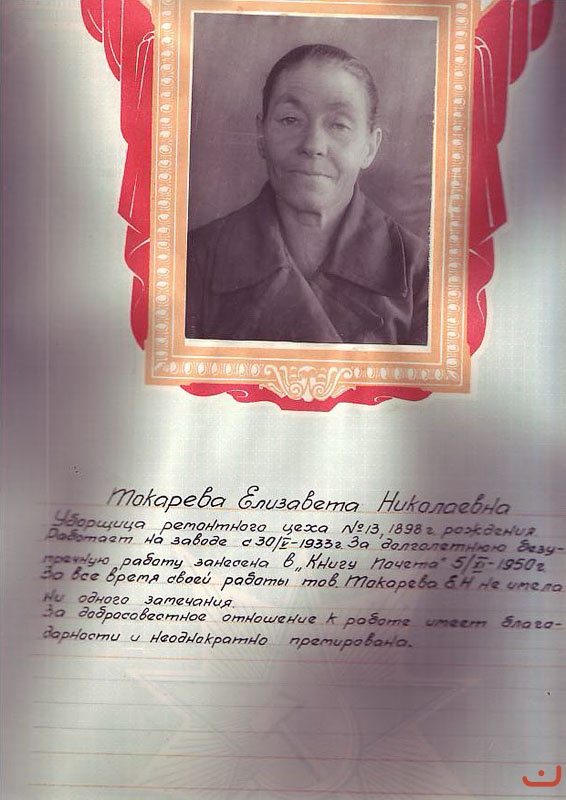 Токарева Елизавета Николаевна
Уборщица ремонтного цеха №13, 1898 г. рождения.
Работает на заводе с 30/V-1933г. За долголетнюю безу-
пречную работу занесена в „Книгу Почета" 5/XI-1950г.
За все время своей работы тов. Токарева Е.Н не имела
ни одного замечания.
За добросовестное отношение к работе имеет благо-
дарности и неоднократно премирована.